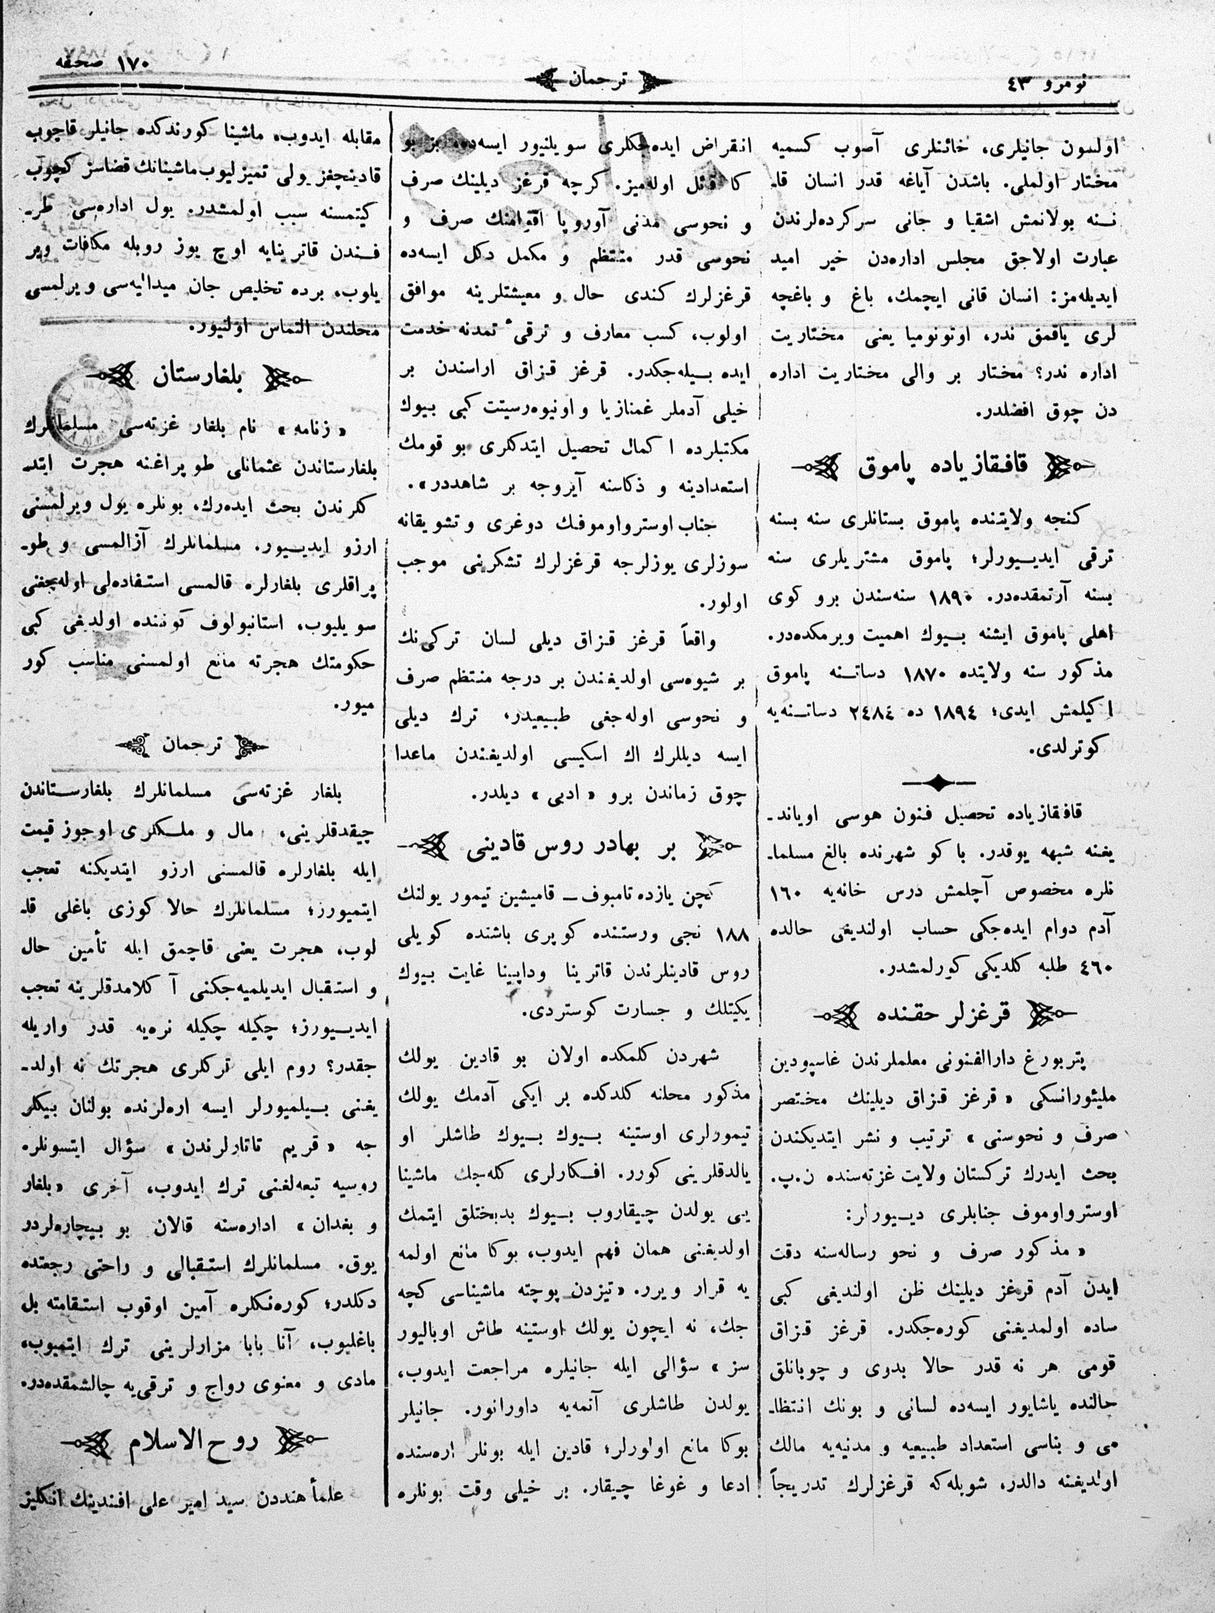 نومرو ٤٣
ترجمان
١٧٠ صحفه
اولسون جانیلری، خائنلری آصوب کسمیه
مختار اولملی. باشدن آیاغه قدر انسان قا۔
ننه بولانمش اشقیا و جانی سرکرده‌لرندن
عبارت اولاجق مجلس اداره‌دن خیر امید
ایدیله‌مز: انسان قانی ایچمك، باغ و باغچه
لری یاقمق ندر، اوتونومیا یعنی مختاریت
اداره ندر؟ مختار بر والی مختاریت اداره
دن چوق افضلدر.
قافقازیاده پاموق
کنجه ولایتنده پاموق بستانلری سنه بسنه
ترقی ایدییورلر؛ پاموق مشتریلری سنه
بسنه آرتمقده‌در. ١٨٩٠ سنه‌سندن برو کوی
اهلی پاموق ایشنه بیوك اهمیت ویرمکده‌در.
مذکور سنه ولایتده ١٨٧٠ دساتنه پاموق
اکیلمش ایدی؛ ١٨٩٤ ده ٢٤٨٤ دساتنه‌یه
کوترلدی.
قافقازیاده تحصیل فنون هوسی اویاند۔
یغنه شبهه یوقدر. باکو شهرنده بالغ مسلما۔
نلره مخصوص آچلمش درس خانه‌یه ١٦٠
آدم دوام ایده‌جکی حساب اولندیغی حالده
٤٦٠ طلبه کلدیکی کورلمشدر.
قرغزلر حقنده
پتربورغ دارالفنونی معلملرندن غاسپودین
ملیئورانسکی « قرغز قزاق دیلینك مختصر
صرف و نحوسنی » ترتیب و نشر ایتدیکندن
بحث ایدرك ترکستان ولایت غزته‌سنده ن.پ.
اوسترواوموف جنابلری دییورلر:
« مذکور صرف و نحو رساله‌سنه دقت
ایدن آدم قرغز دیلینك ظن اولندیغی کبی
ساده اولمدیغنی کوره‌جکدر. قرغز قزاق
قومی هر نه قدر حالا بدوی و چوبانلق
حالنده یاشایور ایسه‌ده لسانی و بونك انتظا۔
می و بناسی استعداد طبیعیه و مدنیه‌یه مالك
اولدیغنه دالدر، شویله‌که قرغزلرك تدریجاً
انقراض ایده‌جکلری سویلنیور ایسه‌ده، بز بو
کا قائل اوله‌میز. کرچه قرغز دیلینك صرف
و نحوسی مدنی آوروپا اقوامنك صرف و
نحوسی قدر منتظم و مکمل دکل ایسه‌ده
قرغزلرك کندی حال و معیشتلرینه موافق
اولوب، کسب معارف و ترقیٔ تمدنه خدمت
ایده بیله‌جکدر. قرغز قزاق اراسندن بر
خیلی آدملر غمنازیا و اونیوه‌رسیتت کبی بیوك
مکتبلرده اکمال تحصیل ایتدکلری بو قومك
استعدادینه و ذکاسنه آیروجه بر شاهددر ».
جناب اوسترواوموفك دوغری و تشویقانه
سوزلری یوزلرجه قرغزلرك تشکرینی موجب
اولور.
واقعاً قرغز قزاق دیلی لسان ترکی‌نك
بر شیوه‌سی اولدیغندن بر درجه منتظم صرف
و نحوسی اوله‌جغی طبیعیدر؛ ترك دیلی
ایسه دیللرك اك اسکیسی اولدیغندن ماعدا
چوق زماندن برو « ادبی » دیلدر.
بر بهادر روس قادینی
کچن یازده تامبوف ــ قامیشین تیمور یولنك
١٨٨ نجی ورستنده کوپری باشنده کویلی
روس قادینلرندن قاترینا وداپینا غایت بیوك
یکیتلك و جسارت کوستردی.
شهردن کلمکده اولان بو قادین یولك
مذکور محلنه کلدکده بر ایکی آدمك یولك
تیمورلری اوستینه بیوك بیوك طاشلر او
یالدقلرینی کورر. افکارلری کله‌جك ماشینا
یی یولدن چیقاروب بیوك بدبختلق ایتمك
اولدیغنی همان فهم ایدوب، بوکا مانع اولمه
یه قرار ویرر. « تیزدن پوچته ماشیناسی کچه
جك، نه ایچون یولك اوستینه طاش اوبالیور
سز » سؤالی ایله جانیلره مراجعت ایدوب،
یولدن طاشلری آتمه‌یه داورانور. جانیلر
بوکا مانع اولورلر؛ قادین ایله بونلر اره‌سنده
ادعا و غوغا چیقار. بر خیلی وقت بونلره
مقابله ایدوب، ماشینا کورندکده جانیلر قاچوب
قادینجغز یولی تمیزلیوب ماشینانك قضاسز کچوب
کیتمسنه سبب اولمشدر. یول اداره‌سی طر۔
فندن قاترینایه اوچ یوز روبله مکافات ویر
یلوب، برده تخلیص جان میدالیه‌سی ویرلمسی
محلندن التماس اولنیور.
بلغارستان
« زنامه » نام بلغار غزته‌سی مسلمانلرك
بلغارستاندن عثمانلی طوپراغنه هجرت ایتد۔
کلرندن بحث ایده‌رك، بونلره یول ویرلمسنی
ارزو ایدییور. مسلمانلرك آزالمسی و طو۔
پراقلری بلغارلره قالمسی استفاده‌لی اوله‌جغنی
سویلیوب، استانبولوف کوننده اولدیغی کبی
حکومتك هجرته مانع اولمسنی مناسب کور
میور.
ترجمان
بلغار غزته‌سی مسلمانلرك بلغارستاندن
چیقدقلرینی، مال و ملکلری اوجوز قیمت
ایله بلغارلره قالمسنی ارزو ایتدیکنه تعجب
ایتمیورز؛ مسلمانلرك حالا کوزی باغلی قا۔
لوب، هجرت یعنی قاچمق ایله تأمین حال
و استقبال ایدیلمیه‌جکنی آکلامدقلرینه تعجب
ایدییورز؛ چکیله چکیله نره‌یه قدر واریله
جقدر؟ روم ایلی ترکلری هجرتك نه اولد۔
یغنی بیلمیورلر ایسه اره‌لرنده بولنان بیکلر
جه « قریم تاتارلرندن » سؤال ایتسونلره
روسیه تبعه‌لغنی ترك ایدوب، آخری « بلغار
و بغدان » اداره‌سنه قالان بو بیچاره‌لردو
یوق. مسلمانلرك استقبالی و راحتی رجعتده
دکلدر؛ کوره‌نکلره آمین اوقوب استقامته بل
باغلیوب، آنا بابا مزارلرینی ترك ایتمیوب،
مادی و معنوی رواج و ترقی‌یه چالشمقده‌در.
روح الاسلام
علمأ هنددن سید امیر علی افندینك انکلیز